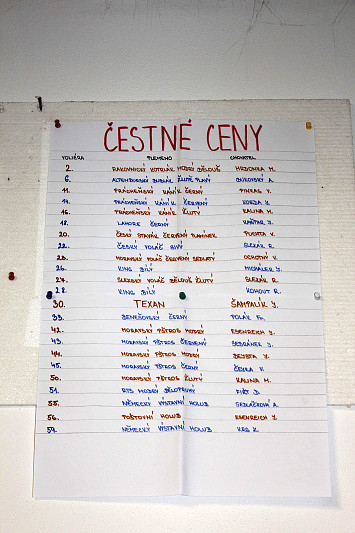 ČESTNÉ CENY
VOLIÉRA PLEMENO CHOVATEL
2. RAKOVNICKÝ KOTRLÁK MODRÝ BĚLOUŠ M.
6. ALTENBURSKÝ BUBLÁK ŽLUTĚ PLAVÝ A.
11. PRÁCHEŇSKÝ KÁNÍK ČERNÝ V.
14. PRÁCHEŇSKÝ KÁNÍK ČERVENÝ
16. PRÁCHEŇSKÝ KÁNÍK ŽLUTÝ KALINA M.
18. LAHORE ČERNÝ J.
20. ČESKÝ STAVÁK ČERVENÝ PLAMÍNEK V.
22. ČESKÝ VOLÁČ SIVÝ SLEZÁK R.
23. MORAVSKÝ VOLÁČ ČERVENÝ SEDLATÝ OCHOTNÝ V.
26. KING BÍLÝ J.
27. SLEZSKÝ VOLÁČ BĚLOUŠ ŽLUTÝ SLEZÁK R.
28. KING BÍLÝ KOHOUT R.
30. TEXAN ŠAMPALÍK J.
33. BENEŠOVSKÝ ČERNÝ POLÁK Fr.
42. MORAVSKÝ PŠTROS MODRÝ ESENREICH Z.
43. MORAVSKÝ PŠTROS ČERVENÝ J.
44. MORAVSKÝ PŠTROS MODRÝ
45. MORAVSKÝ PŠTROS ČERNÝ
50. MORAVSKÝ PŠTROS ŽLUTÝ KALINA M.
51. RYS MODRÝ BĚLOPRUHÝ
55. NĚMECKÝ VÝSTAVNÍ HOLUB SEDLÁČKOVÁ A.
56. POŠTOVNÍ HOLUB ESENREICH Z.
57. NĚMECKÝ VÝSTAVNÍ HOLUB